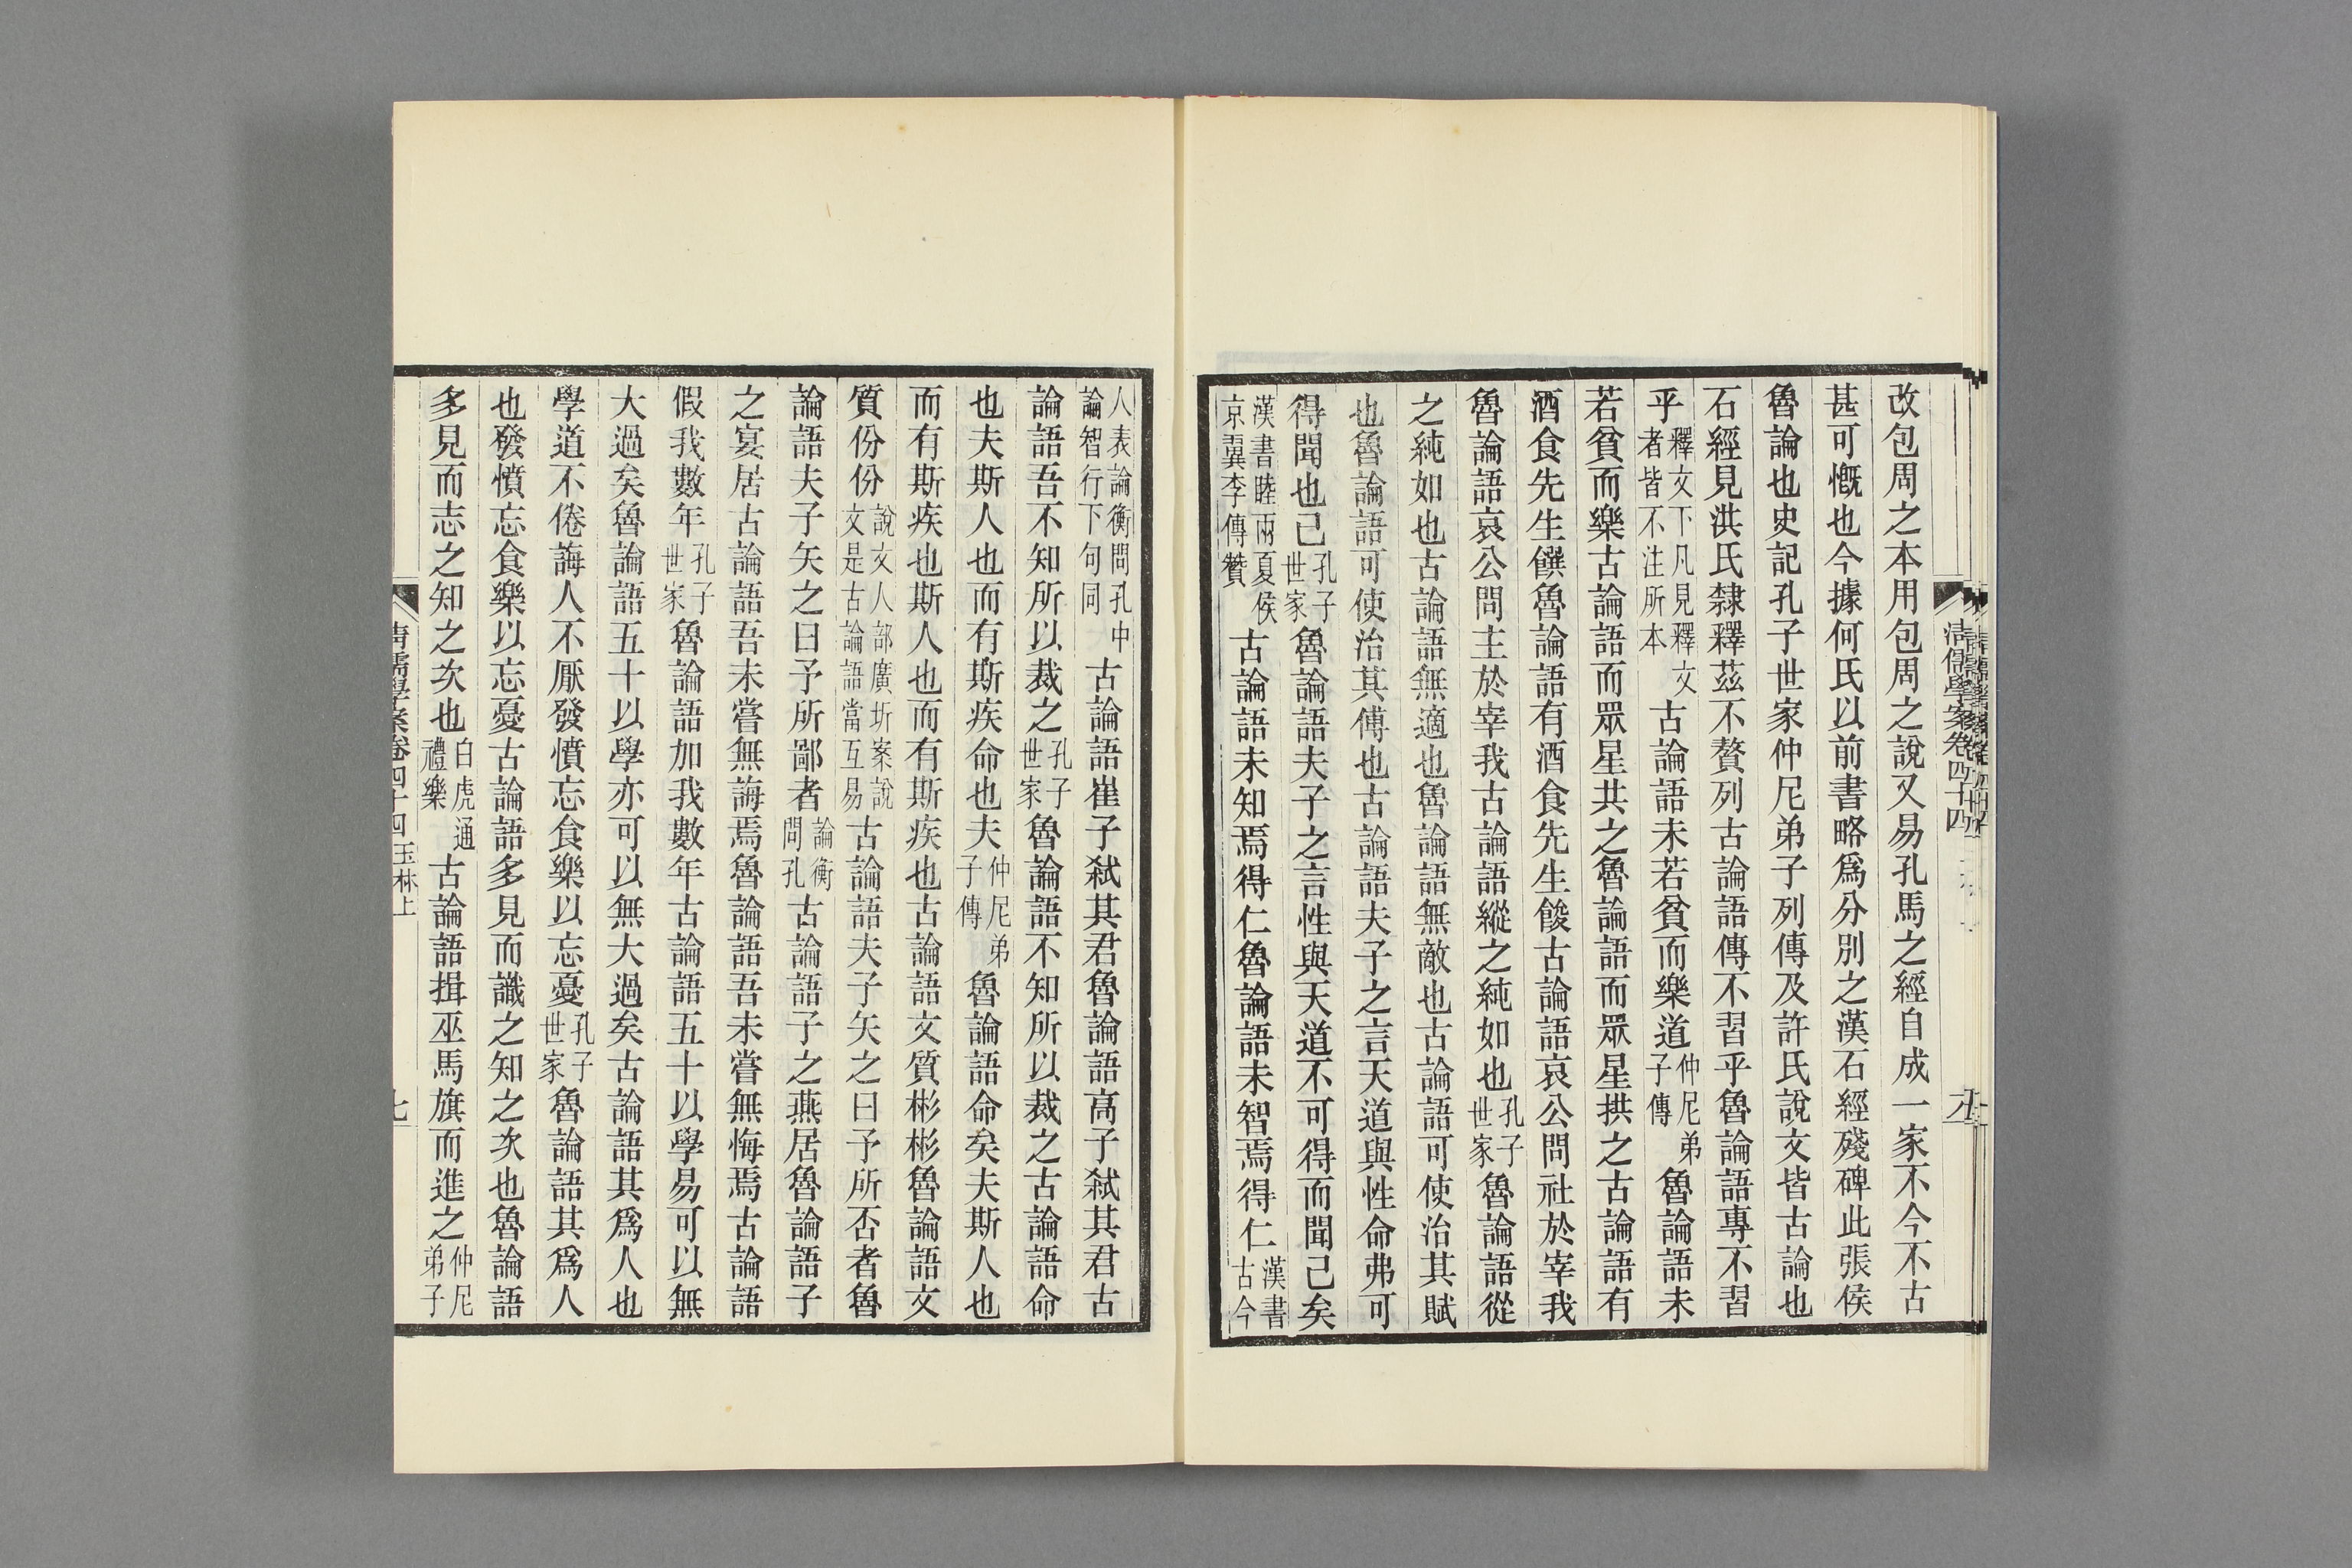 改包周之本用包周之說又易孔馬之經自成一家不今不古
甚可慨也今據何氏以前書略爲分別之漢石經殘碑此張侯
魯論也史記孔子世家仲尼弟子列傳及許氏說文皆古論也
石經見洪氏隸釋茲不贅列古論語傳不習乎魯論語專不習
乎釋文下凡見釋文者皆不注所本古論語未若貧而樂道仲尼弟子傳魯論語未
若貧而樂古論語而眾星共之魯論語而眾星拱之古論語有
酒食先生饌魯論語有酒食先生餕古論語哀公問社於宰我
魯論語哀公問主於宰我古論語縱之純如也孔子世家魯論語從
之純如也古論語無適也魯論語無敵也古論語可使治其賦
也魯論語可使治其傅也古論語夫子之言天道與性命弗可
得聞也已孔子世家魯論語夫子之言性與天道不可得而聞已矣
漢書眭兩夏侯京翼李傳贊古論語未知焉得仁魯論語未智焉得仁漢書古今
清儒學案卷四十四
人表論衡問孔中論智行下句同古論語崔子弒其君魯論語高子弒其君古
論語吾不知所以裁之孔子世家魯論語不知所以裁之古論語命
也夫斯人也而有斯疾命也夫仲尼弟子傳魯論語命矣夫斯人也
而有斯疾也斯人也而有斯疾也古論語文質彬彬魯論語文
質份份說文人部廣圻案說文是古論語當互易古論語夫子矢之曰予所否者魯
論語夫子矢之曰予所鄙者論衡問孔古論語子之燕居魯論語子
之宴居古論語吾未嘗無誨焉魯論語吾未嘗無悔焉古論語
假我數年孔子世家魯論語加我數年古論語五十以學易可以無
大過矣魯論語五十以學亦可以無大過矣古論語其爲人也
學道不倦誨人不厭發憤忘食樂以忘憂孔子世家魯論語其爲人
也發憤忘食樂以忘憂古論語多見而識之知之次也魯論語
多見而志之知之次也白虎通禮樂古論語揖巫馬旗而進之仲尼弟子
清儒學案卷四十四 玉林上
七